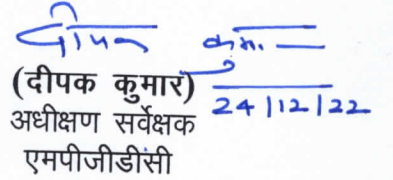 दीपक कुमार
(दीपक कुमार)
24/12/22
अधीक्षण सर्वेक्षक
एमपीजीडीसी